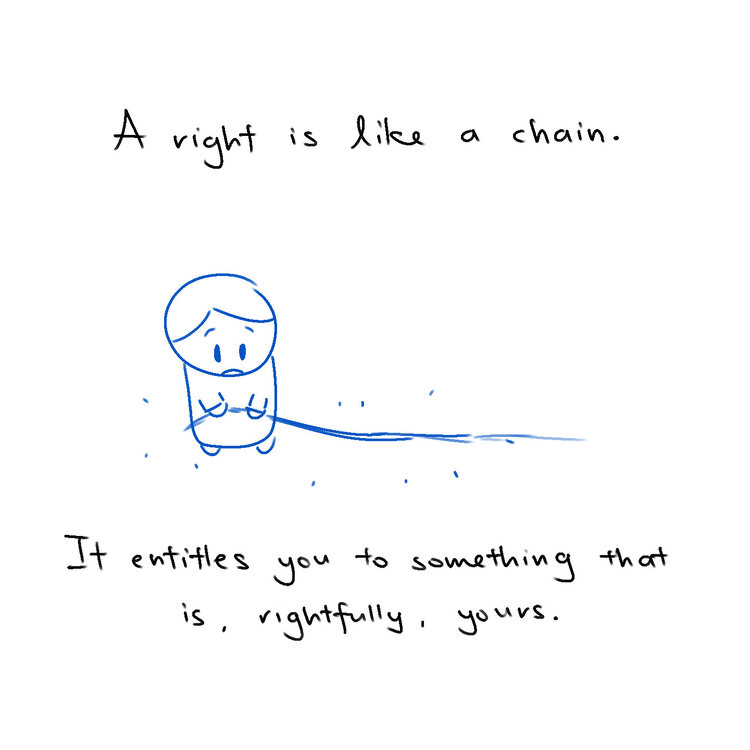 A right is like a chain.
It entitles you to something that
is, rightfully, yours.